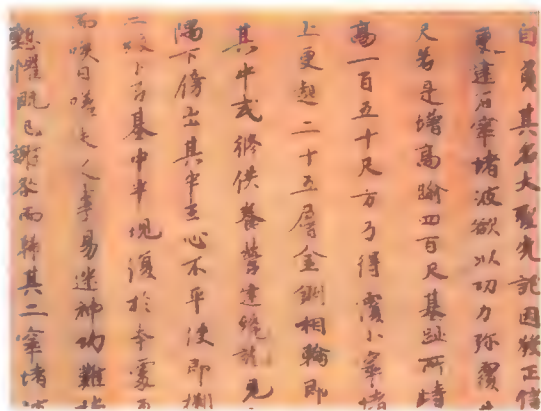 自負其名大聖先記因發正信
更建石窣堵波欲以功力弥覆
尺若是增高踰四百尺基趾所峙
高一百五十尺方乃得覆小窣堵
上更起二十五層金銅相輪即
其中式修供養營建纔訖見
隅下傍出其半王心不平使即擲
二級下石基中半現復於本處
而歎曰嗟夫人事易迷神功難掩
慙懼既已謝咎而歸其二窣堵波